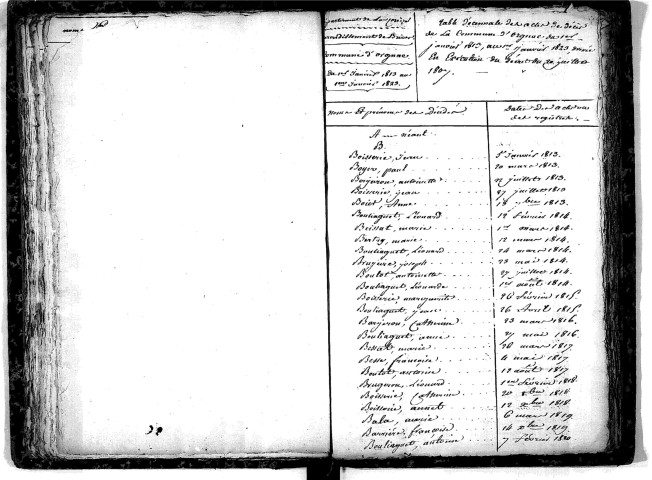 noms
Département de la Corrèze
arrondissement de Brive
Commune d'orgnac
Du 1er Janvier 1813 au
1er Janvier 1823.
Table décennale des actes de décès
de La Commune d'orgnac du 1er
janvier 1813, au 1er janvier 1823, dressé
En Exécution du décret du 20 juillet
1807.
Noms Et prénoms des Décédés
Dates Des actes
des registres.
A néant
B.
Boisserie, Jean 5 Janvier 1813.
Boyer, paul 20 mars 1813.
Bergeron, antoinette juillet 1813.
Boisserie, jean 27 juillet 1813
Boiet, Anne 18 1813.
Bouliaguet, Léonard 12 février 1814.
Beissat, marie 1er mars 1814.
Bertry, marie 12 mars 1814.
Bouliaguet, Léonard 24 mars 1814.
Bruyere, joseph 23 mai 1814.
Boutot, antoinette 27 juillet 1814.
Bouliaguet, Léonarde 1er août 1814.
Boisserie, marguerite 26 février 1815.
Bouliaguet, jean 26 Avril 1815.
Bergeron, Catherine 23 mars 1816.
Bouliaguet, anne 27 mai 1816.
Bessat, marie 20 mars 1817
Besse, françoise 4 mai 1817
Boutot, antoine 12 août 1817
Brugeron, Léonard 1er février 1818.
Boisserie, Catherine 20 1818
Boisserie, annet 12 1818
Bala, marie 6 mars 1819.
Barrière, françoise 14 1819.
Bouliaguet, antoine 7 février 1820